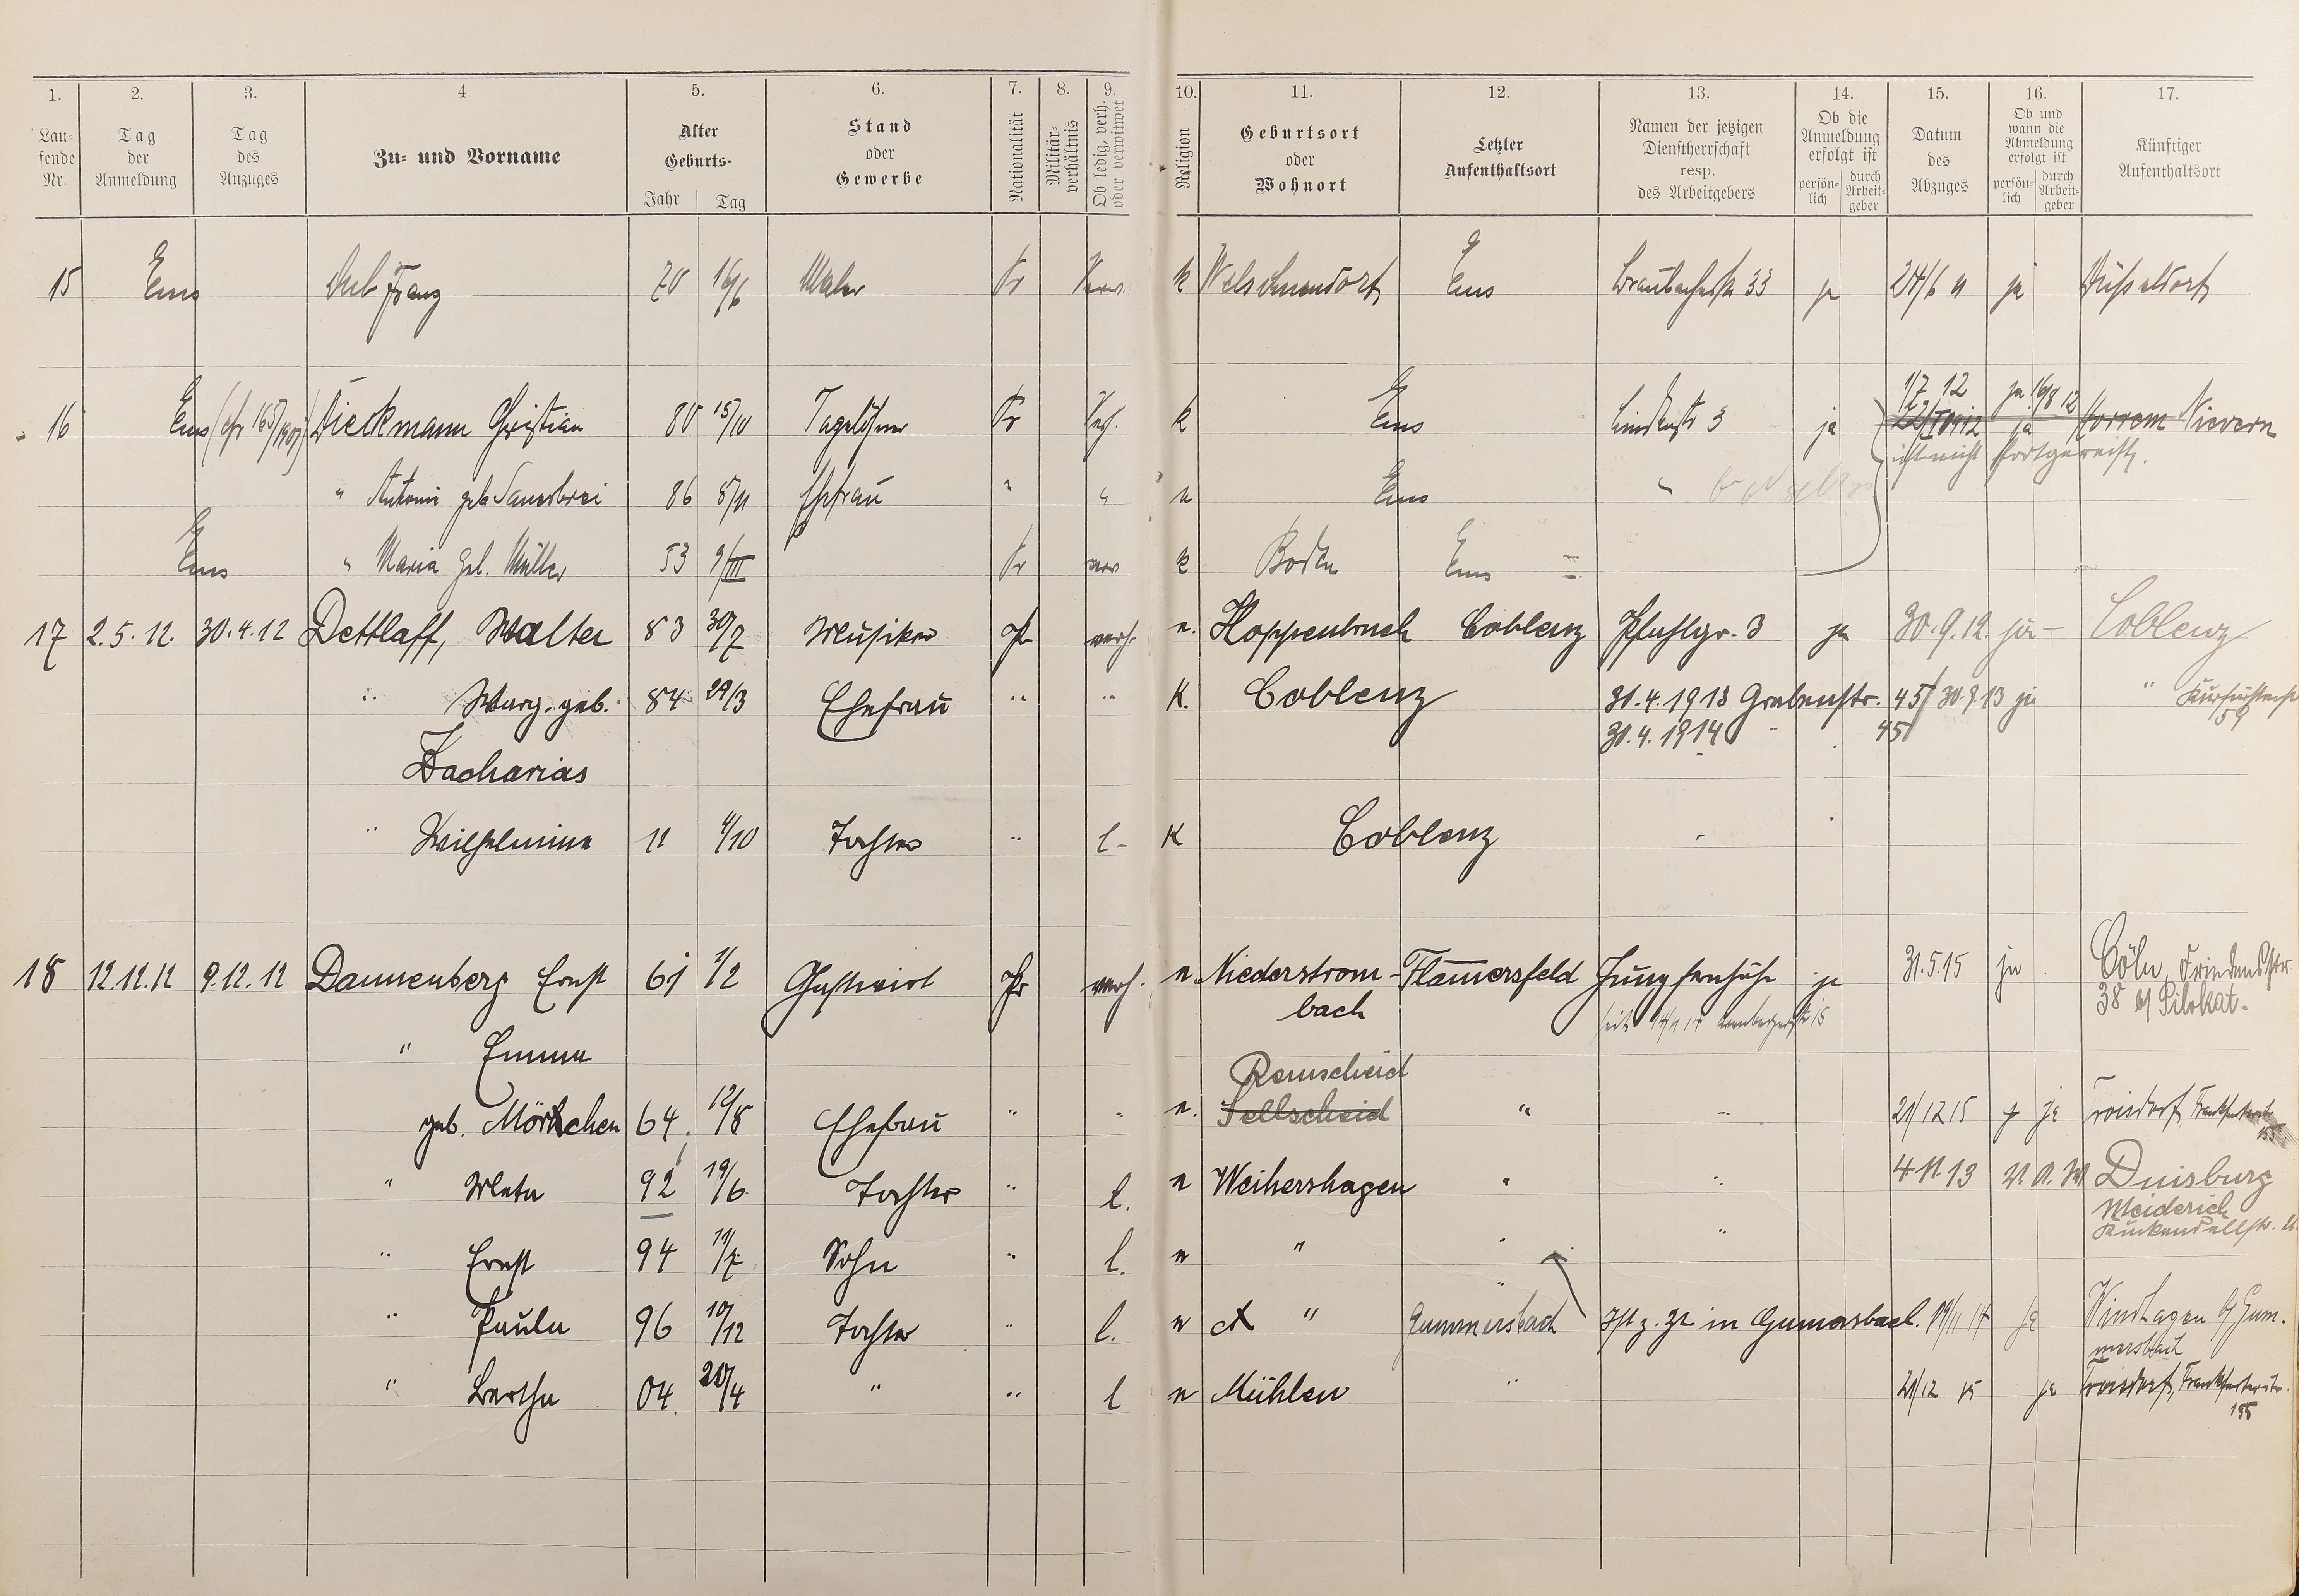 1. 2. 3. 4. 5. 6. 7. 8. 9. 10. 11. 12. 13. 14. 15. 16. 17.
Lau-
fende
Nr.
Tag
der
Anmeldung
Tag
des
Anzuges
Zu- und Vorname
Alter
Geburts-
Jahr Tag
Stand
oder
Gewerbe
Nationalität
Militär-
verhältnis
Ob ledig, verh.
oder verwitwet
Religion
Geburtsort
oder
Wohnort
Letzter
Aufenthaltsort
Namen der jetzigen
Dienstherrschaft
resp.
des Arbeitgebers
Ob die
Anmeldung
erfolgt ist
persön-
lich
durch
Arbeit-
geber
Datum
des
Abzuges
Ob und
wann die
Abmeldung
erfolgt ist
persön-
lich
durch
Arbeit-
geber
Künftiger
Aufenthaltsort
15 Ems Franz 70 16/6 Maler Pr k Welschneudorf Ems 33 ja 24/6 11 ja Düsseldorf
1/7 12 ja 16/8 12
16 Ems Dieckmann Christian 80 15/10 Tagelöhner Pr Verh. k Ems Lindenstr 3 ja ja Horrem Nievern
ist nicht fortgereist.
" geb. Sauerbrei 86 8/11 Ehefrau " " " Ems "
Ems " Maria geb. Müller 53 9/III Pr verw k Boden Ems
17 2.5.12. 30.4.12 Dettlaff, Walter 83 30/7 Musiker Pr verh. e. Hoppenbruch Coblenz Pfuhlgr. 3 ja 30.9.12 ja - Coblenz
" Marg. geb. 84 29/3 Ehefrau " " K. Coblenz 30.4.1913 Grabenstr. 45 30.9.13 ja " Kurfürstenstr
59
30.4.1914 " 45
Zacharias
" Wilhelmine 11 4/10 Tochter " l- K Coblenz "
18 12.12.12 9.12.12 Dannenberg Ernst 61 1/2 Gastwirt Pr verh. e. Niederstrom- Flamersfeld Jungfernhöhe ja 31.5.15 ja Cöln, Friedensstr.
bach 38
" Emma
Remscheid
geb. Mörchen 64. 12/8 Ehefrau " " e. Sellscheid " " 21/12 15 ja Troisdorf, Frankfurterstr
155
" Meta 92 19/6 Tochter " l. e Weihershagen " " 4.11.13 Duisburg
Meiderich
" Ernst 94 11/7 Sohn " l. e " " "
" Paula 96 10/12 Tochter " l. e " Gummersbach Ist z. Zt in Gumersbach. 19/11 14 ja Windhagen b/ Gum-
mersbach
" Bertha 04. 20/4 " " l e Mühlen " 21/12 15 ja Troisdorf, Frankfurterstr.
155